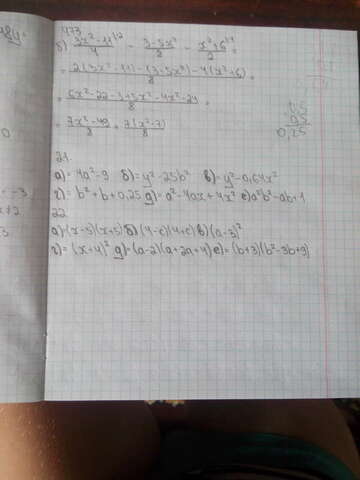 473
б) 3x²-11\² / 4 - 3-5x² / 8 - x²+6\⁴ / 2 =
= 2(3x²-11)-(3-5x²)-4(x²+6) / 8 =
= 6x²-22-3+5x²-4x²-24 / 8 =
= 7x²-49 / 8 = 7(x²-7) / 8
0,25
21.
а)= 4a²-9 б)= y²-25b² в)= y²-0,64x²
г)= b²+b+0,25 д)= a²-4ax+4x² е) a²b²-ab+1
22.
а)=(x-5)(x+5) б) (4-c)(4+c) в) (a-3)²
г)= (x+4)² д)= (a-2)(a+2a+4) е)= (b+3)(b²-3b+9)